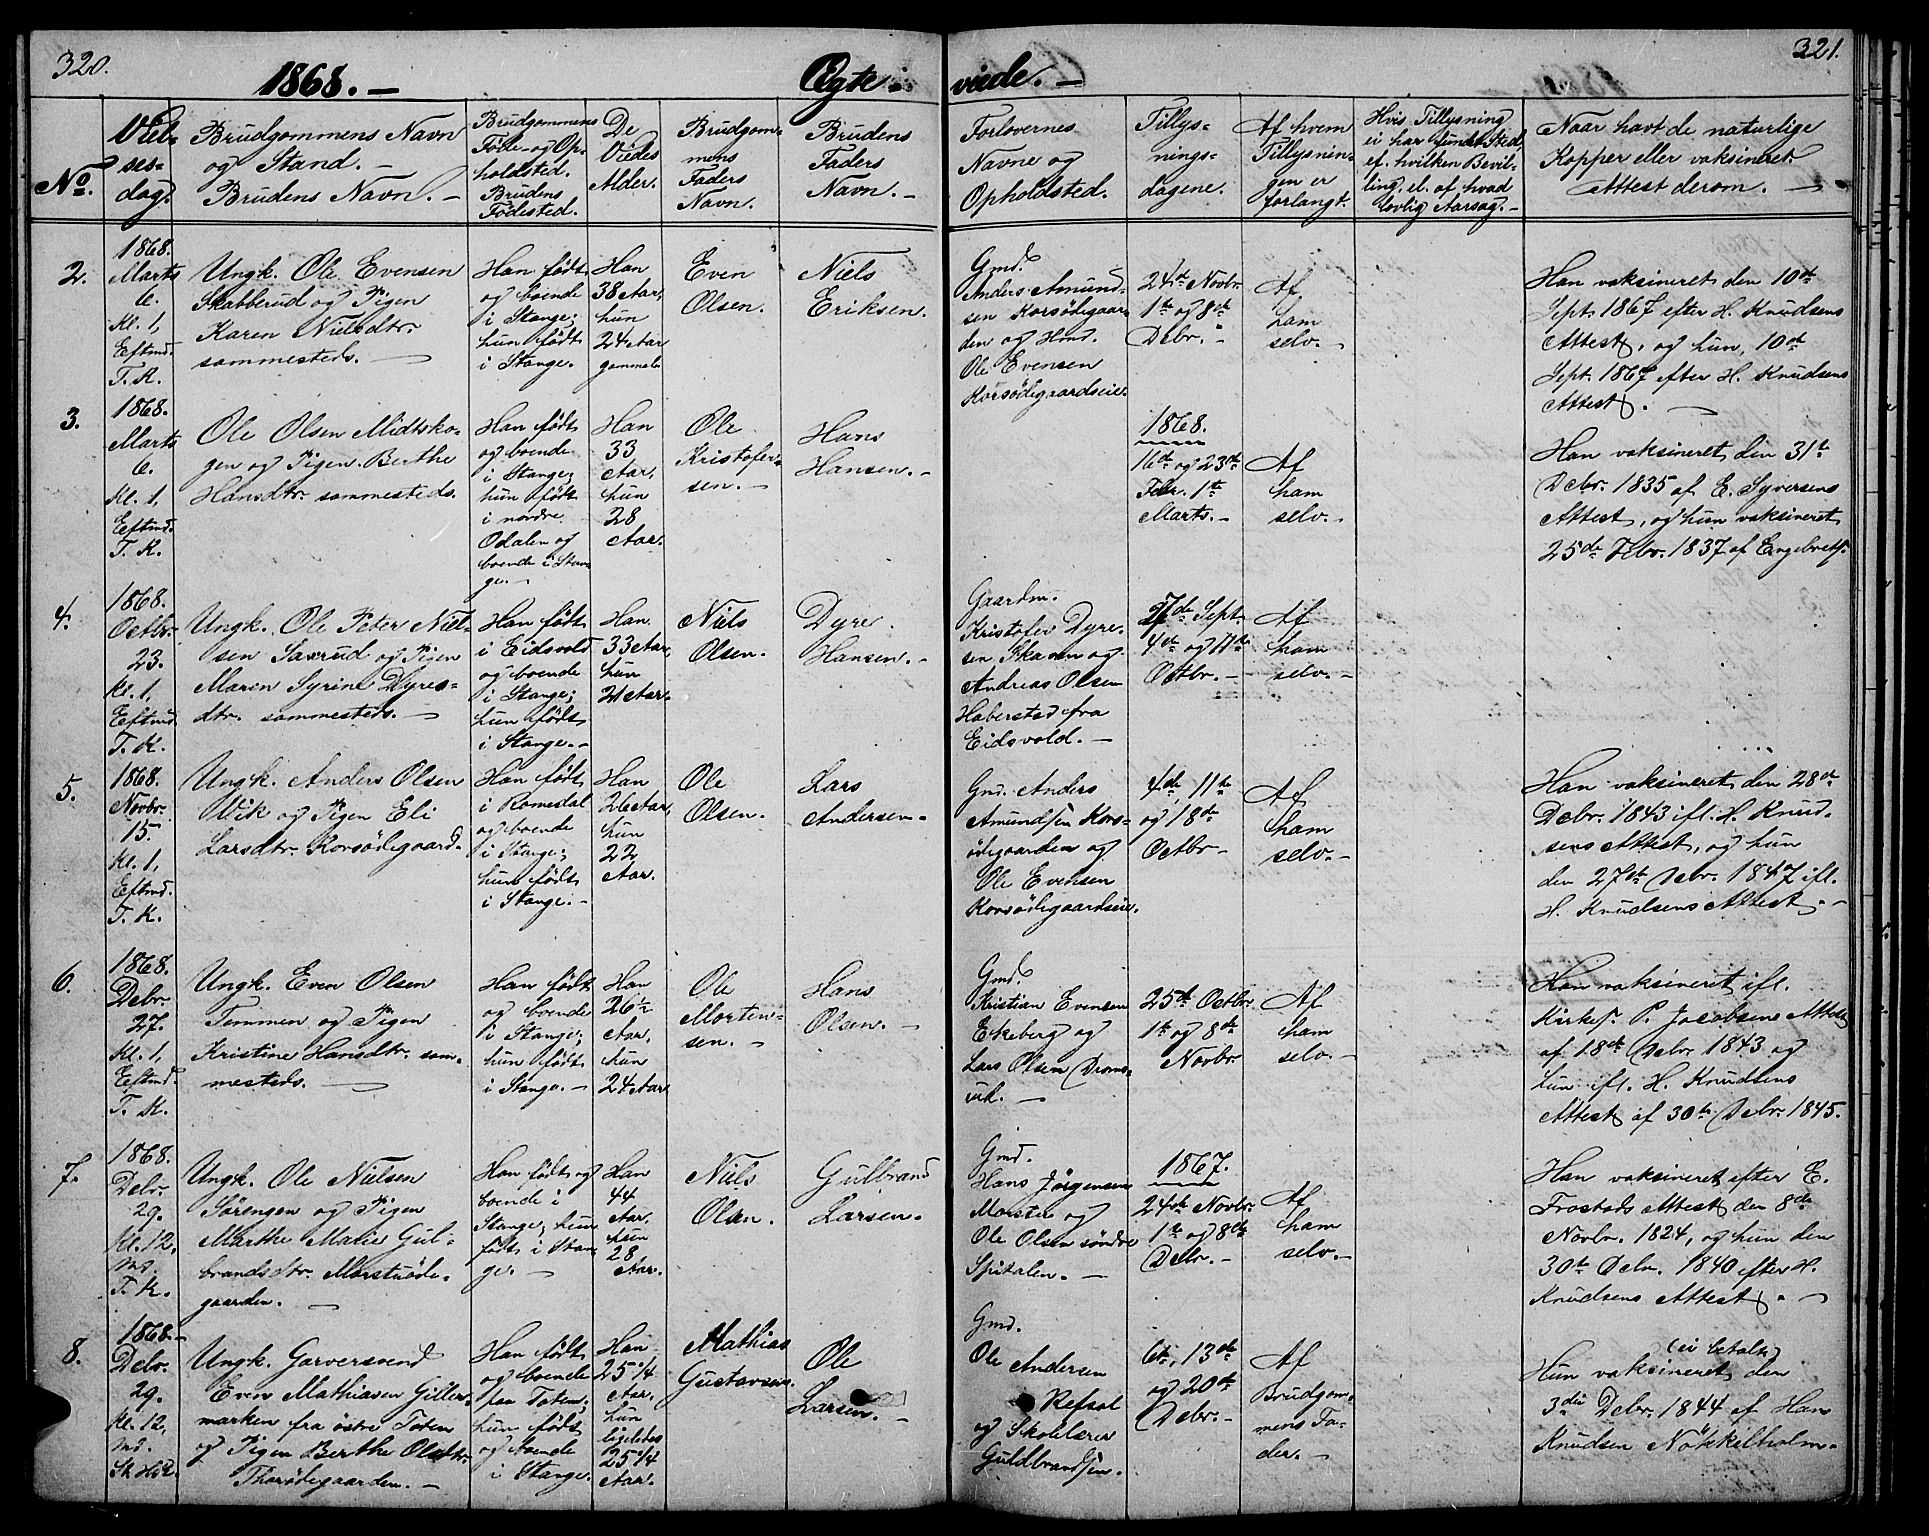 320.
1868. -
Ægte-
viede. -
321.
No.
Viel-
ses-
dag.
Brudgommens Navn
og Stand. -
Brudens Navn. -
Brudgommens
Føde- og Op-
holdsted.
Brudens
Fødested.
De
Viedes
Alder.
Brudgom-
mens
Faders
Navn.
Brudens
Faders
Navn. -
Forlovernes
Navne og
Opholdsted.
Tillys-
nings-
dagene.
Af hvem
Tillysnin-
gen er
forlangt.
Hvis Tillysning
ei har fundet Sted,
ef. hvilken Bevil-
ling, el. af hvad
lovlig Aarsag. -
Naar havt de naturlige
Kopper eller vaksineret.
Attest derom. -
2.
1868.
Marts
6.
Kl. 1,
Eftmd.
T. K.
Ungk. Ole Evensen
Skabberud og Pigen
Karen Nielsdtr.
sammesteds. -
Han født
og boende
i Stange;
hun født
i Stange.
Han
38 Aar,
hun
24 Aar
gammel.
Even
Olsen.
Niels
Eriksen.
Gmd.
Anders Amund-
sen Korsödegaar-
den og Hmd.
Ole Evensen
Korsödegaardseie.
24de Novbr.
1te og 8de
Debr. -
Af
ham
selv. -
Han vaksineret den 10de
Sept. 1867 efter H. Knudsens
Attest, og hun, 10de
Sept. 1867 efter H. Knudsens
Attest. -
3.
1868.
Marts
6.
Kl. 1,
Eftmd.
T. K.
Ole Olsen Midtsko-
gen og Pigen Berthe
Hansdtr. sammesteds.
Han født
og boende
i Stange;
hun født
i nordre
Odalen og
boende i Stan-
ge. -
Han
33
Aar,
hun
28
Aar.
Ole
Kristofer-
sen. -
Hans
Hansen. -
1868.
16de og 23de
Febr. 1te
Marts. -
Af
ham
selv. -
Han vaksineret den 31te
Debr. 1835 af E. Syversens
Attest, og hun vaksineret
25de Febr. 1837 af Engebrets.
4.
1868.
Octbr.
23.
Kl. 1,
Eftmd.
T. K.
Ungk. Ole Peter Niel-
sen Saxrud og Pigen
Maren Syrine Dyres-
dtr. sammesteds. -
Han født
i Eidsvold
og boende
i Stange;
hun født
i Stange. -
Han
33 Aar,
hun
21 Aar.
Niels
Olsen.
Dyre
Hansen. -
Gaardm.
Kristofer Dyre-
sen Skaren og
Andreas Olsen
Habersted fra
Eidsvold. -
27de Sept.
4de og 11te
Octbr. -
Af
ham
selv. -
5.
1868.
Novbr.
15.
Kl. 1,
Eftmd.
T. K.
Ungk. Anders Olsen
Wik og Pigen Eli
Larsdtr. Korsödegaard.
Han født
i Romedal
og boende
i Stange;
hun født
i Stange. -
Han
26 Aar,
hun
22
Aar.
Ole
Olsen.
Lars
Andersen.
Gmd. Anders
Amundsen Kors-
ödegaarden og
Ole Evensen
Korsödegaardseie.
4de 11te
og 18de
Octbr. -
Af
ham
selv. -
Han vaksineret den 28de
Debr. 1843 ifl. H. Knud-
sens Attest, og hun
den 27de Debr. 1847 ifl.
H. Knudsens Attest. -
6.
1868.
Debr.
27.
Kl. 1,
Eftmd.
T. K.
Ungk. Even Olsen
Temmen og Pigen
Kristine Hansdtr. sam-
mesteds. -
Han født
og boende
i Stange;
hun født
i Stange. -
Han
26½
Aar,
hun
24 Aar
Ole
Morten-
sen. -
Hans
Olsen. -
Gmd.
Kristian Evensen
Ekeberg og
Lars Olsen Droms-
25de Octbr.
1te og 8de
Novbr.
Af
ham
selv. -
Han vaksineret ifl.
Kirkes. P. Jacobsens Attest
af 18de Debr. 1843 og
hun ifl. H. Knudsens
Attest af 30te Debr. 1845.
7.
1868.
Debr.
29.
Kl. 12,
Md.
T. K.
Ungk. Ole Nielsen
Sörengen og Pigen
Marthe Marie Gul-
brandsdtr. Morstuöde-
gaarden. -
Han født og
boende i
Stange; hun
født i Stan-
ge. -
Han
44
Aar,
hun
28
Aar.
Niels
Olsen.
Gulbrand
Larsen.
Gmd.
Hans Jörgensen
Morstu og
Ole Olsen söndre
Spitalen. -
1867.
24de Novbr.
1te og 8de
Debr. -
Af
ham
selv. -
Han vaksineret efter E.
Frostads Attest den 8de
Novbr. 1824, og hun den
30te Debr. 1840 efter H.
Knudsens Attest. -
8.
1868. -
Debr.
29.
Kl. 12,
Md.
Ungk. Garversvend
Even Mathiasen Giller-
marken fra östre Toten
og Pigen Berthe Olsdtr.
Thorödegaarden. -
Han født
og boende
paa Toten;
hun født
og boende
i Stange.
Han
25 0/4
Aar,
hun
ligeledes
25 0/4
Aar.
Mathias
Gustavsen.
Ole
Larsen. -
Gmd.
Ole Andersen
Refsal
og Skolelærer
Guldbrandsen.
6te, 13de
og 20de
Debr. -
Af
Brudgom-
mens Fa-
der. -
(ei betalt)
Hun vaksineret den
3die Debr. 1844 af Hans
Knudsen Nökkelholm. -